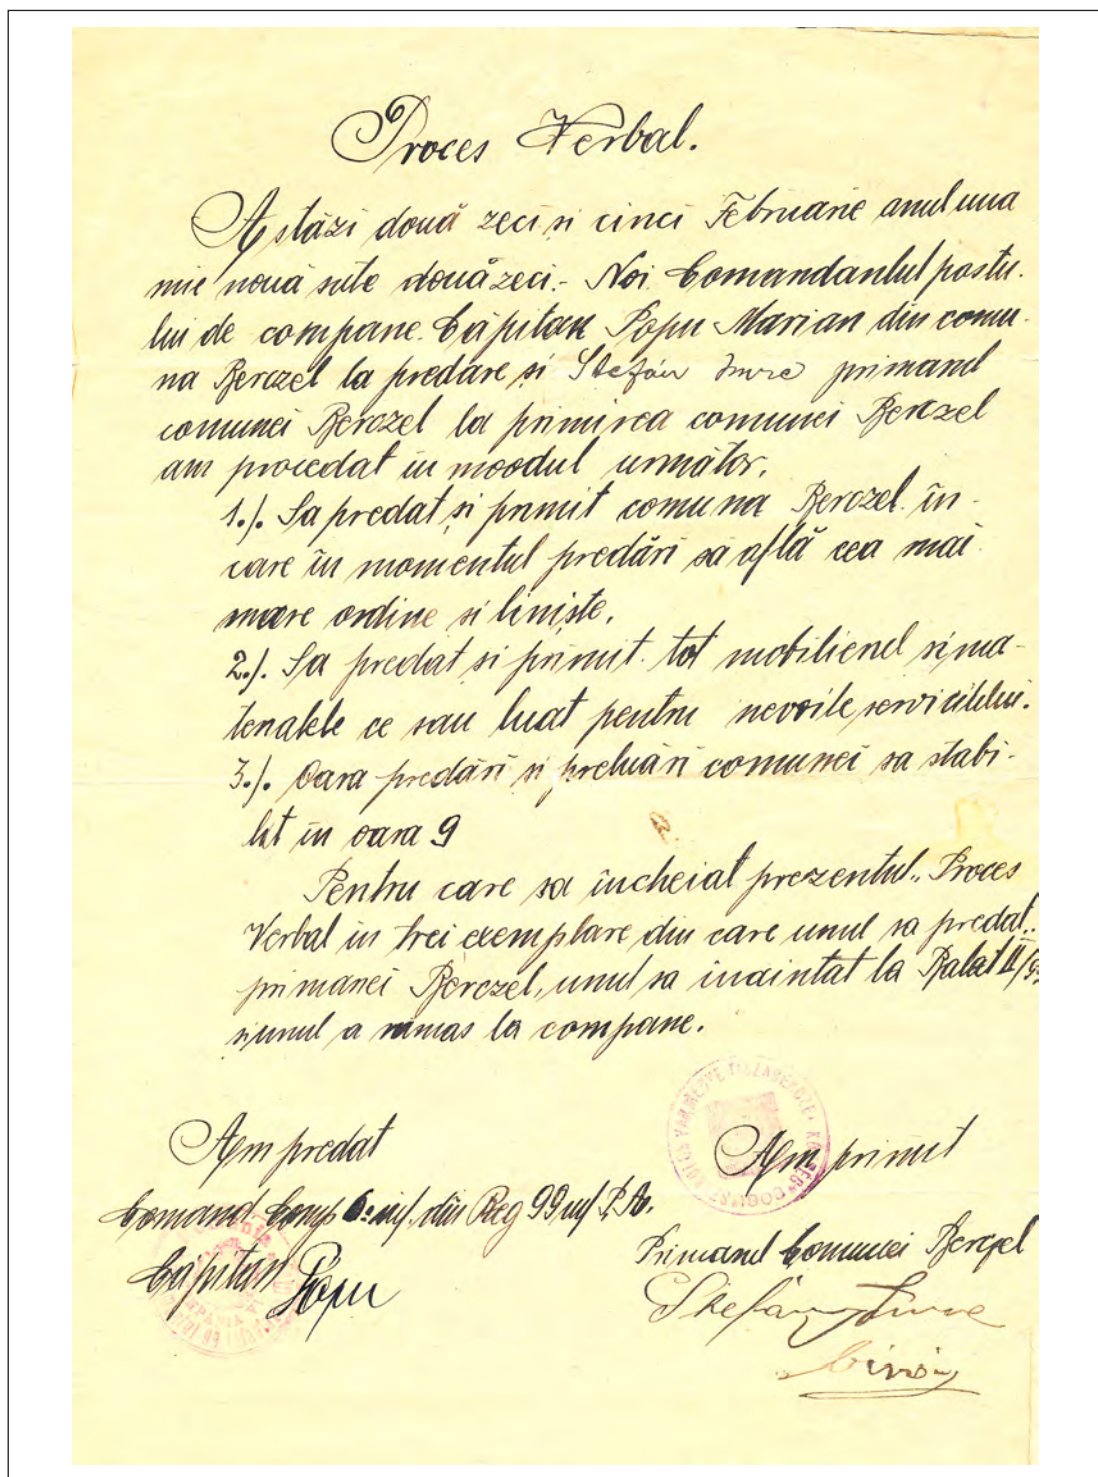 Proces Verbal.
Astăzi două zeci și cinci Februarie anul una
mie nouă sute douăzeci.- Noi Comandantul postu-
lui de companie. Căpitan Popu Marian din comu-
na Berczel la predare și Stefán Imre primarul
comunei Berczel la primirea comunei Berczel
am procedat in moodul următor.
1.). Sa predat și primit comuna Berczel în-
care în momentul predări să află cea mai
mare ordine si liniște.
2.). Sa predat si primit tot mobilierul si ma-
terialele ce sau luat pentru nevoile serviciilui.
3.). Oara predări si preluări comunei sa stabi-
lit in oara 9
Pentru care sa încheiat prezentul „Proces
Verbal in trei exemplare din care unul sa predat
primariei Berczel, unul sa inaintat la Balat II/99
si unul a ramas la companie.
Am predat
Am primit
Comand. Comp 6-a inf. din Reg 99 inf
Căpitan Popu
Primarul Comunei Berczel
Stefán Imre
biró